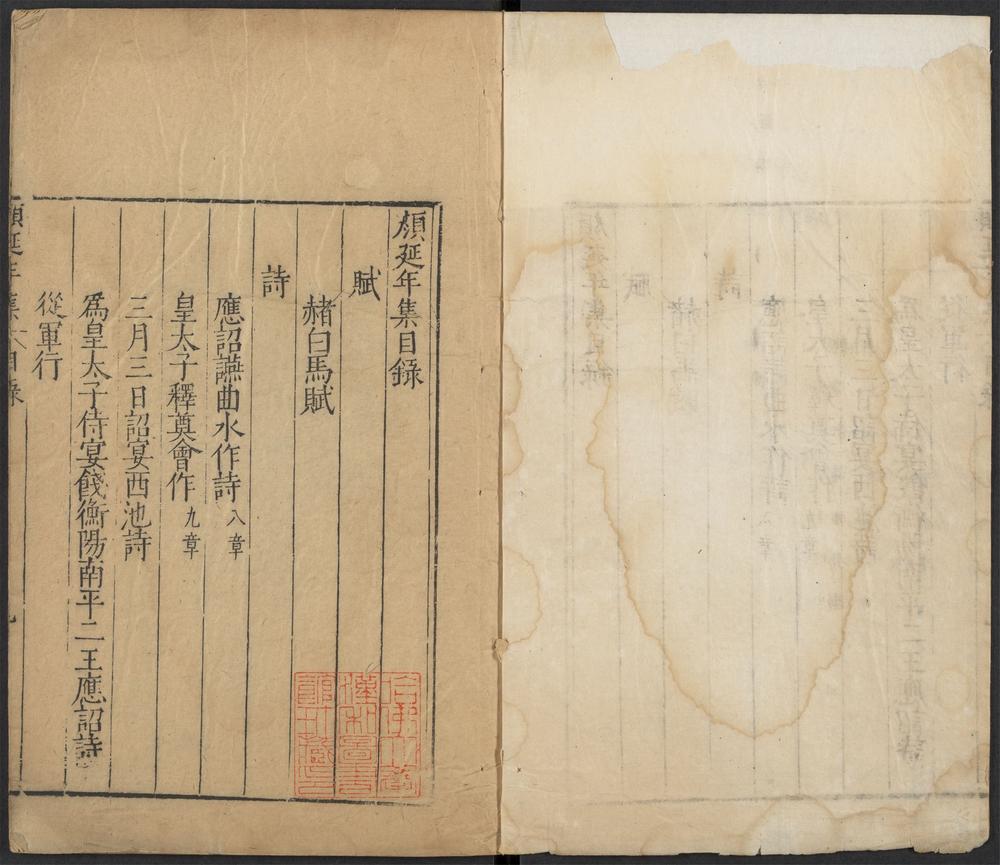 顏延年集目錄
賦
赭白馬賦
詩
應詔讌曲水作詩 八章
皇太子釋奠會作 九章
三月三日詔宴西池詩
爲皇太子侍宴餞衡陽南平二王應詔詩
從軍行
顏延年集 目錄
哈佛大學漢和圖書館珍藏印